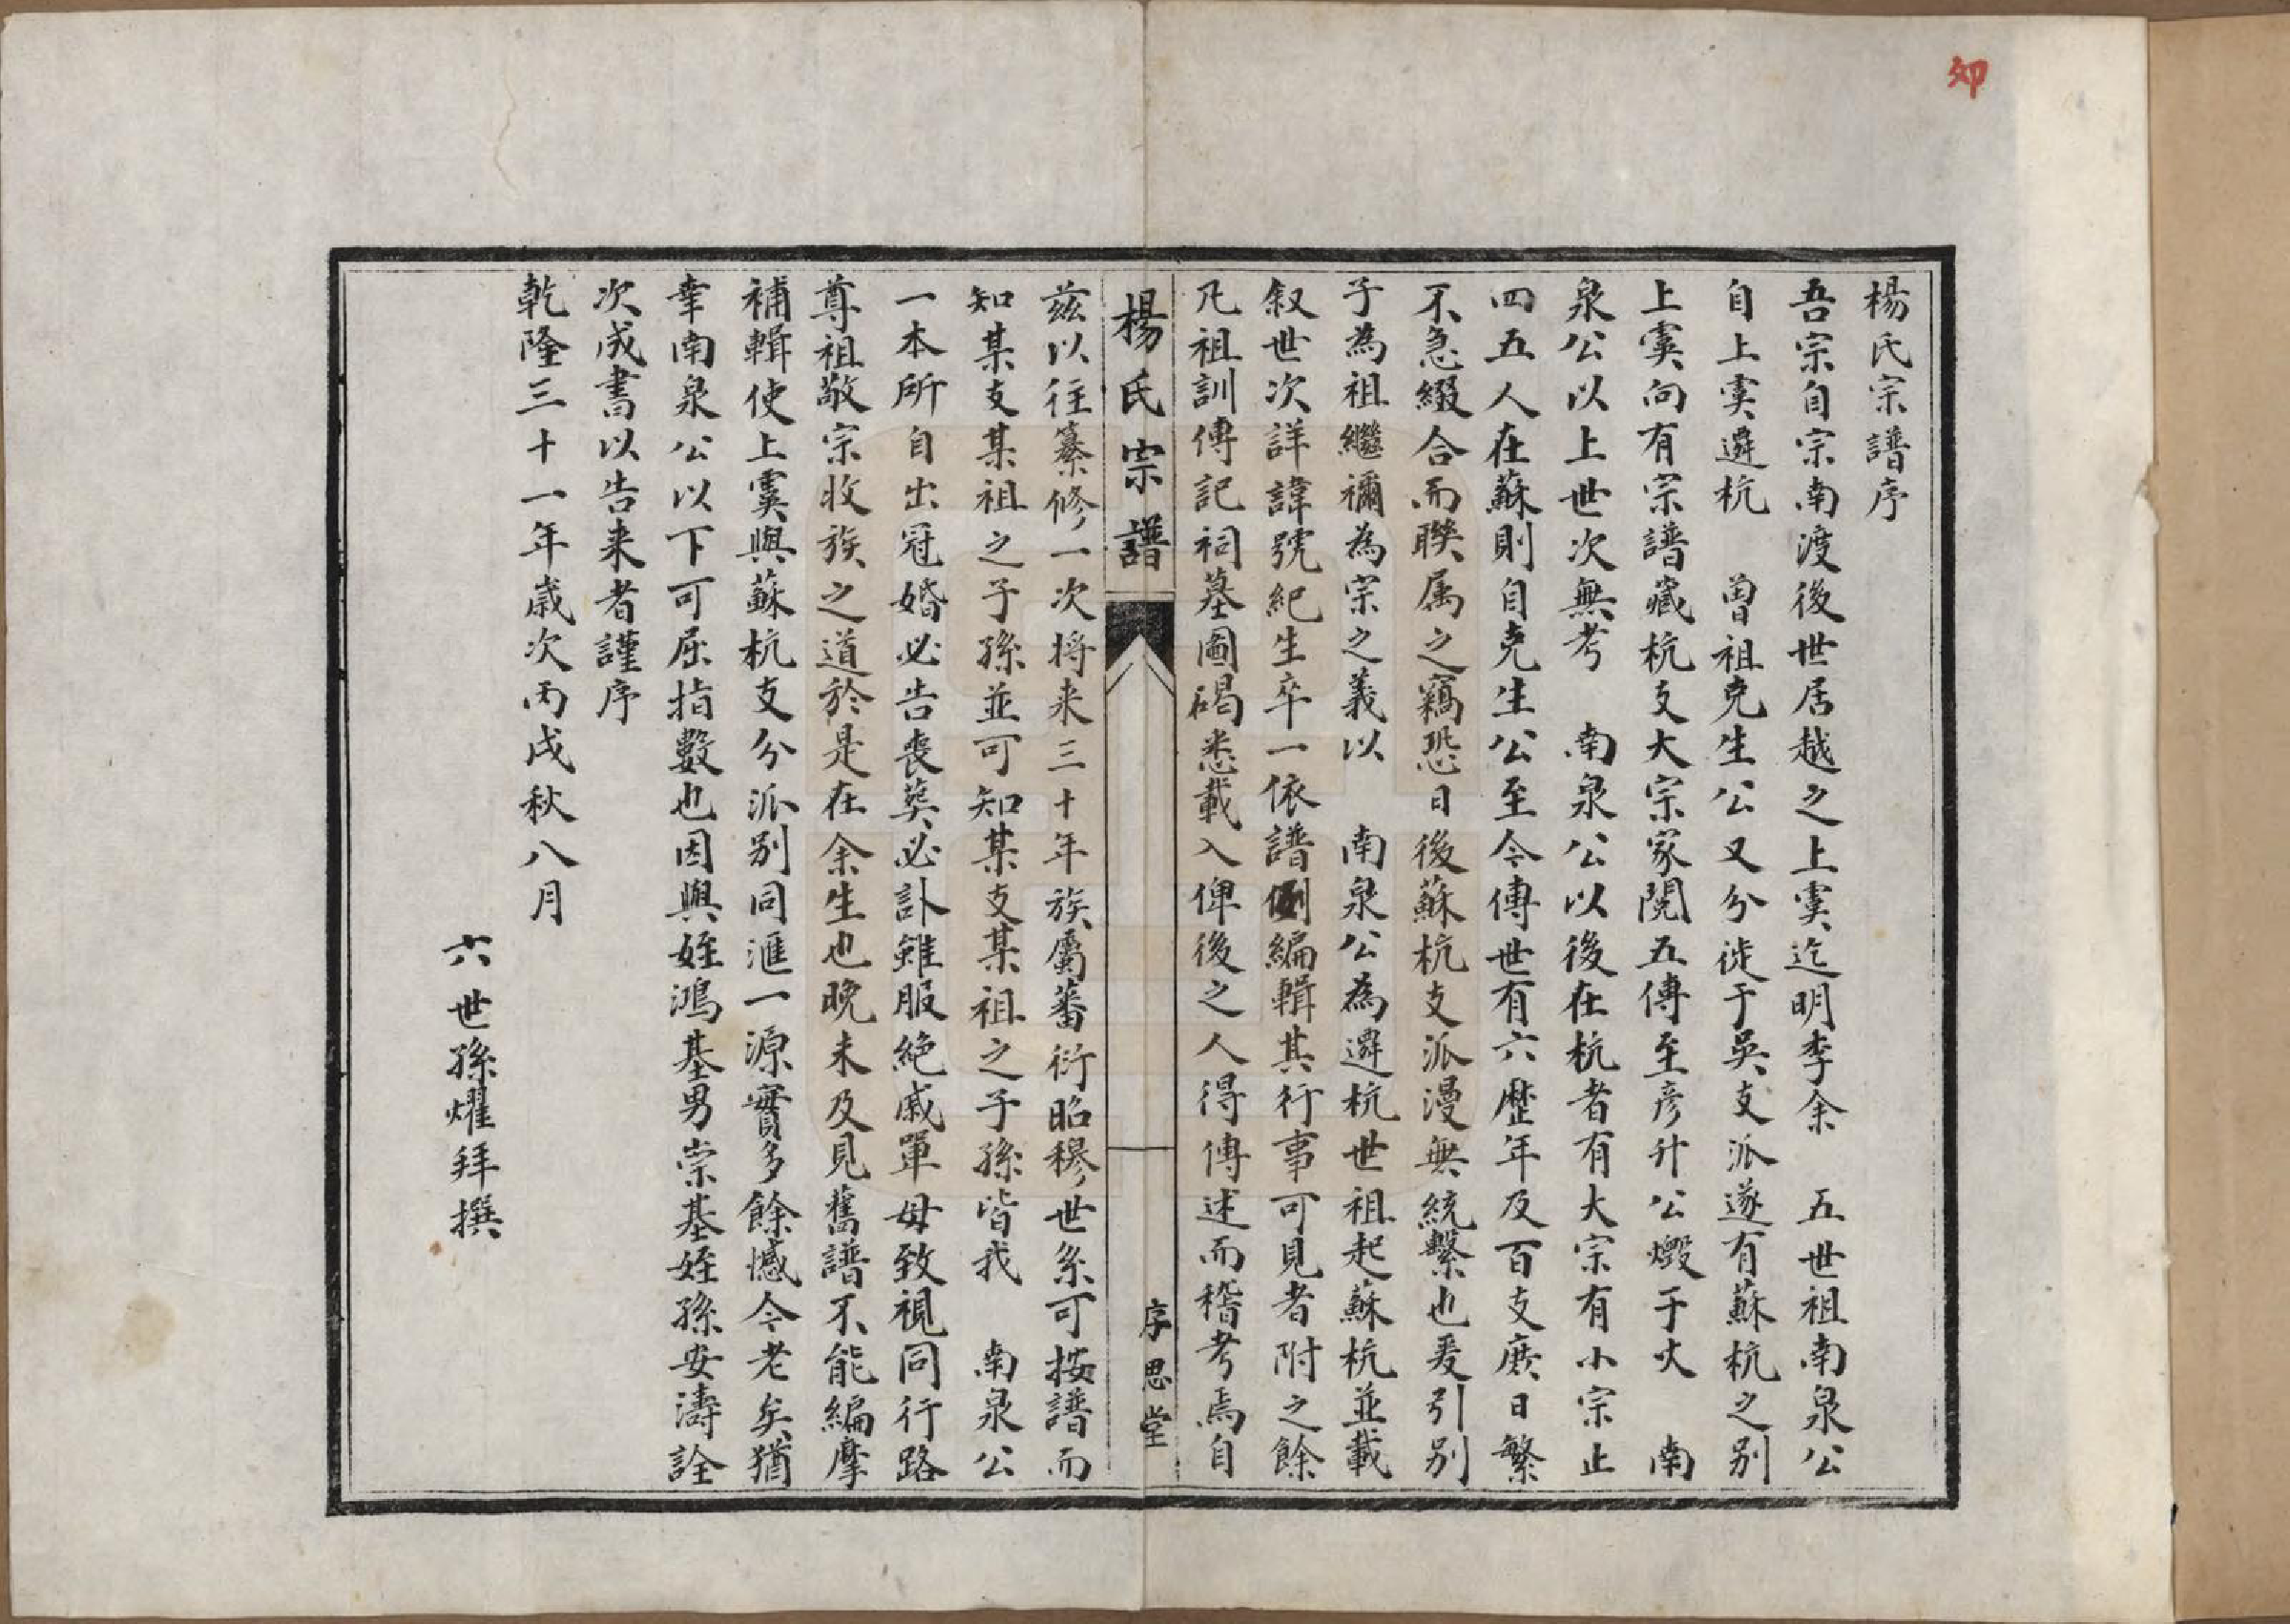 楊氏宗譜序
吾宗自宗南渡後世居越之上虞迄明季余　五世祖南泉公
自上虞遷杭　曾祖克生公又分徙于吳支派遂有蘇杭之别
上虞向有宗譜藏杭支大宗家閱五傳至彥升公燬于火　南
泉公以上世次無考　南泉公以後在杭者有大宗有小宗止
四五人在蘇則自克生公至今傳世有六歷年及百支庶日繁
不急綴合而聯属之竊恐日後蘇杭支派漫無統繫也爰引别
子為祖繼禰為宗之義以　南泉公為遷杭世祖起蘇杭並載
叙世次詳諱號紀生卒一依譜例編輯其行事可見者附之餘
凡祖訓傳記祠墓圖碣悉載入俾後之人得傳述而稽考焉自
楊氏宗譜
序思堂
茲以往纂修一次將来三十年族屬蕃衍昭穆世系可按譜而
知某支某祖之子孫並可知某支某祖之子孫皆我　南泉公
一本所自出冠婚必告喪葬必訃雖服絶戚單毋致視同行路
尊祖敬宗收族之道於是在余生也晚未及見舊譜不能編摩
補輯使上虞與蘇杭支分派别同滙一源實多餘憾今老矣猶
幸南泉公以下可屈指數也因與姪鴻基男崇基姪孫安濤詮
次成書以告来者謹序
乾隆三十一年歳次丙戌秋八月
六世孫燿拜撰